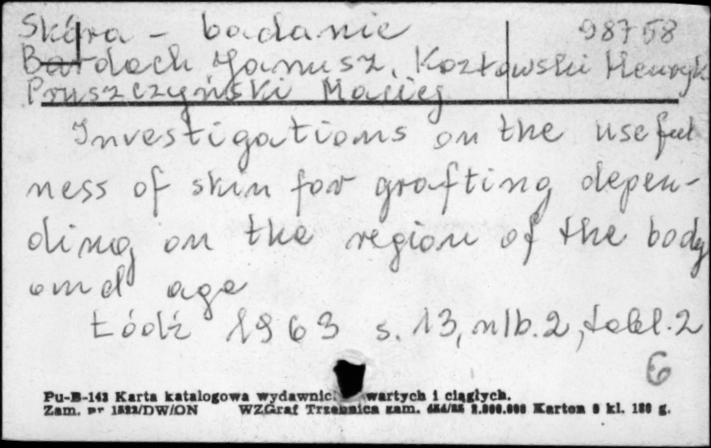 Skóra - badanie 98758
Bardach Janusz, Kozłowski Henryk
Pruszczyński Maciej
Investigations on the useful
ness of skin for grafting depen-
ding on the region of the body
and age
Łódź 1963 s. 13, nlb. 2, tabl. 2
6
Pu-B-143 Karta katalogowa wydawnic. wartych i ciągłych.
Zam. nr /DW/ON WZGraf Trzebnica zam. Karton kl. g.